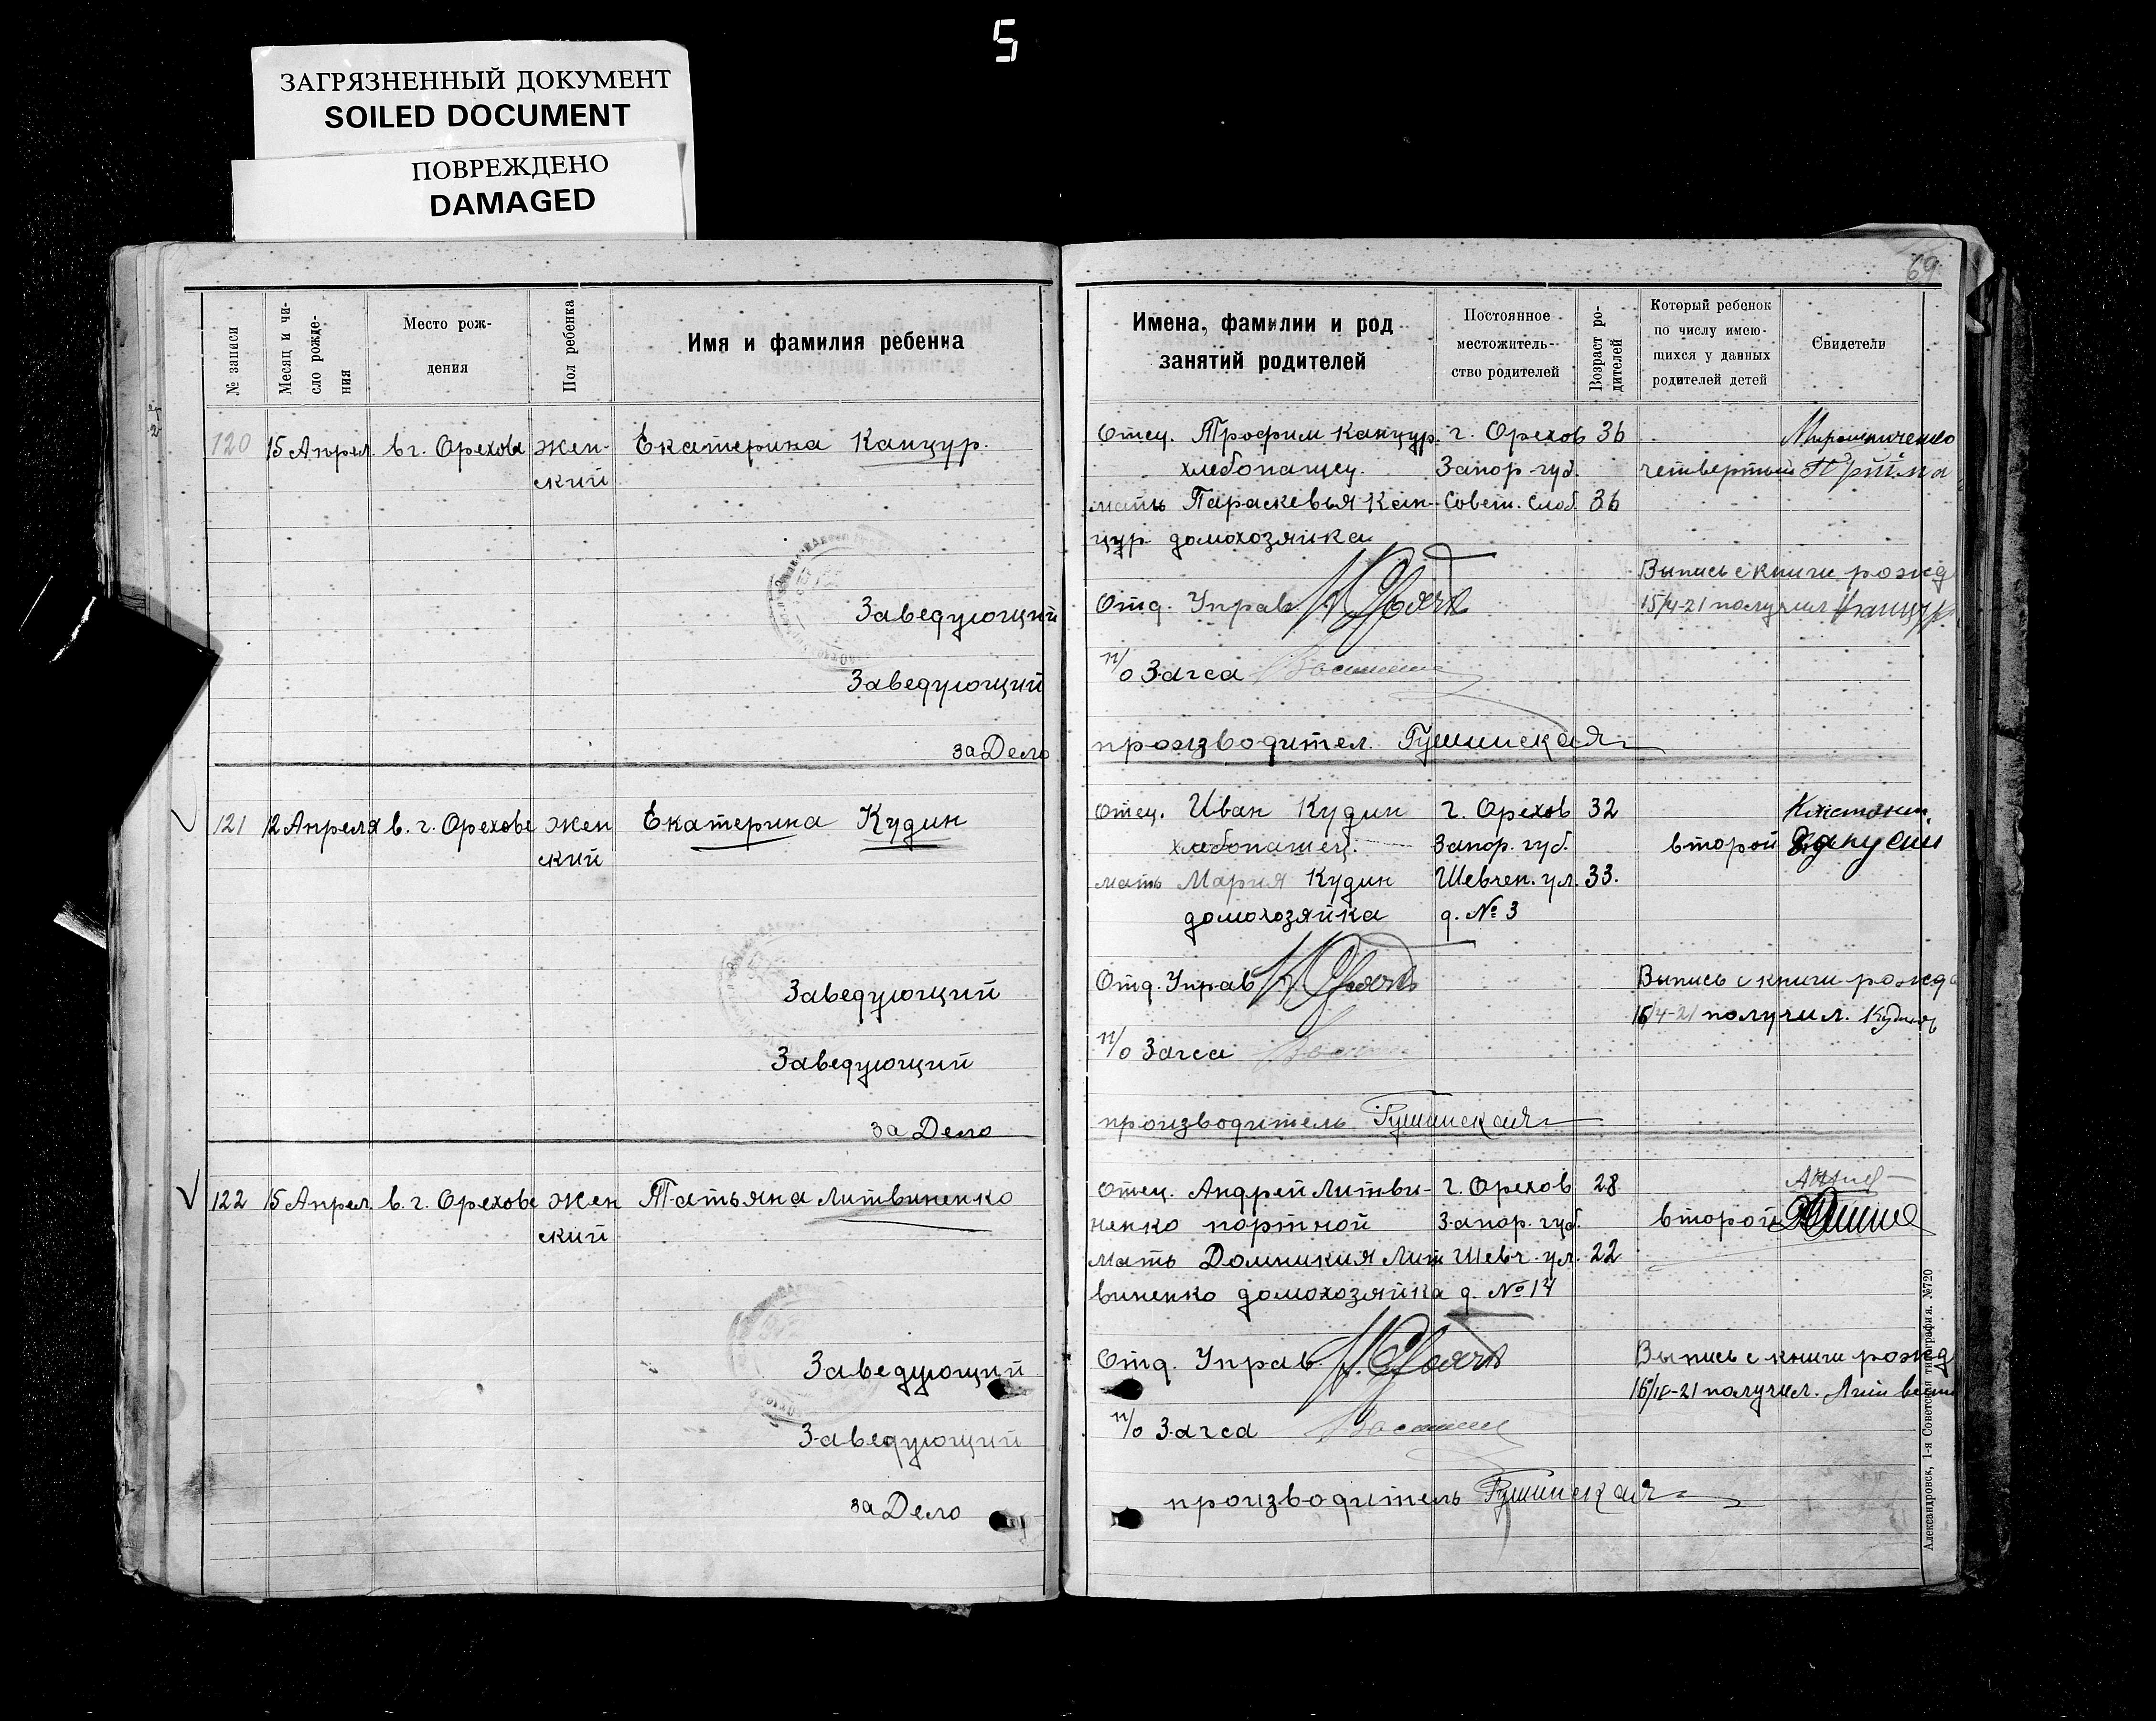 5
ЗАГРЯЗНЕННЫЙ ДОКУМЕНТ
SOILED DOCUMENT
ПОВРЕЖДЕНО
DAMAGED
№ записи
Месяц и чи-
сло рожде-
ния
Место рож-
дения
Пол ребенка
Имя и фамилия ребенка
120 15 Апрел. в г. Орехова Жен- Екатерина Канцур.
ский
Заведующий
Заведующий
за Дело
121 12 Апреля в. г. Орехове Жен Екатерина Кудин
ский
Заведующий
Заведующий
за Дело
122 15 Апрел. в. г. Орехове Жен Татьяна Литвиненко
ский
Заведующий
Заведующий
за Дело
69
Имена, фамилии и род
занятий родителей
Постоянное
местожитель-
ство родителей
Возраст ро-
дителей
Который ребенок
по числу имею-
щихся у данных
родителей детей
Свидетели
Отец. Трофим Канцур. г. Орехов 36 Мирошниченко
хлебопашец. Запор. губ. четвертый
мать Параскевья Кан- Совет. Слоб. 36
цур домохозяйка
Выпись с книги рожд
Отд. Управ
15/4-21 получил Канцур
п/о Загса
производител. Гушинская
Отец. Иван Кудин г. Орехов 32
хлебопашец. Запор. губ. второй
мать Мария Кудин Шевчен. ул. 33.
домохозяйка д. № 3
Отд. Управ Выпись с книги рожд
16/4-21 получил. Кудин
п/о Загса
производитель Гушинская
Отец. Андрей Литви- г. Орехов 28
ненко портной Запор. губ. второй
мать Домникия Лит Шевч. ул. 22
виненко домохозяйка д. № 14
Отд. Управ. Выпись с книги рожд
16/IV-21 получил.
п/о Загса
производитель Гушинская
Александровск, 1-я Советская типография. №720